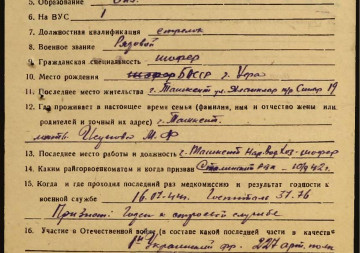 5. Образование
6. На ВУС 1
7. Должностная квалификация стрелок
8. Военное звание Рядовой
9. Гражданская специальность шофер
10. Место рождения БАССР г. Уфа
11. Последнее место жительства г. Ташкент ул. 19
12. Где проживает в настоящее время семья (фамилия, имя и отчество жены или
родителей и точный их адрес) г. Ташкент.
мать М. Ф
13. Последнее место работы и должность г. Ташкент шофер
14. Каким райгорвоенкоматом и когда призван Сталинский РВК
15. Когда и где проходил последний раз медкомиссию и результат годности к
военной службе 16.07.44г. Госпитале 3776
Признан: Годен к строевой службе
16. Участие в Отечественной войне (в составе какой последней части в качестве
1й Украинский фр. 227 арт. полк